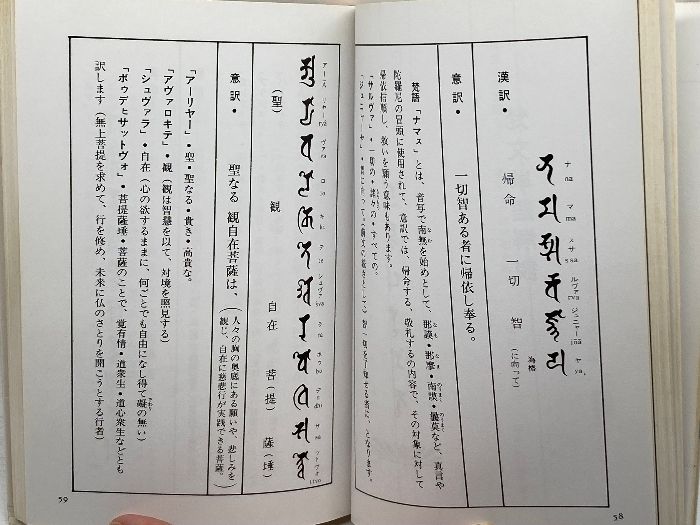 ナ マ スサ ルヴァ ジュニャー ヤ
na ma ssa rva jñā ya,
漢訳・ 帰命 一切 智(に向って)
海幡
意訳・ 一切智ある者に帰依し奉る。
梵語「ナマス」とは、音写で南無を始めとして、那謨・那摩・南謨・曩莫など、真言や
陀羅尼の冒頭に使用されて、意訳では、帰命する、敬礼するの内容で、その対象に対して
帰依信順し、救いを願う意味もあります。
「サルヴァ」・一切の・諸々の・すべての。
58
アー ヴァ ロ キ テ シュヴァ ラ
(聖) 観 自在 菩(提) 薩(埵)
意訳・ 聖なる 観自在菩薩は、
(人々の胸の奥底にある願いや、悲しみを
観じ、自在に慈悲行が実践できる菩薩。)
「アーリヤー」・聖・聖なる・貴き・高貴な。
「アヴァロキテ」・観(観は智慧を以て、対境を照見する)
「シュヴァラ」・自在(心の欲するままに、何ごとでも自由になし得て礙の無い)
「ボゥデヒサットヴォ」・菩提薩埵・菩薩のことで、覚有情・道衆生・道心衆生などとも
訳します(無上菩提を求めて、行を修め、未来に仏のさとりを開こうとする行者)
59